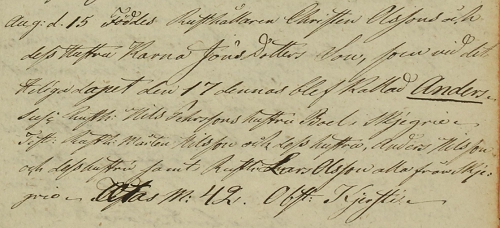 Aug: d. 15 Föddes Rusthållaren Christen Olssons och
dess hustru Karna Jöns Dotters Son, som vid det
Heliga dopet den 17 dennas blef kallad Anders.
Susc: Rusth: Nils Pehrssons hustru Boel i Skjegrie.
Test: Rusth: Mårten Nilsson och dess hustru, Anders Nilsson
och dess hustru samt Rusth: Lars Olsson alla från Skje-
grie. Ætas M: 42. Obst: Kjersti